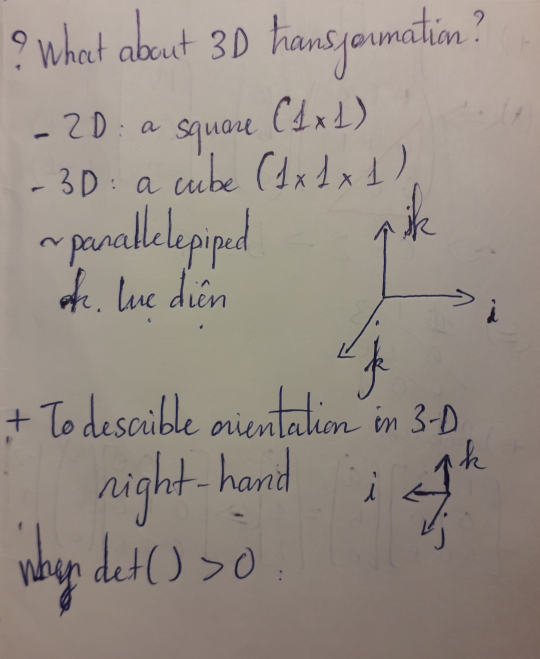 ? What about 3D transformation?
- 2D: a square (1x1)
- 3D: a cube (1x1x1)
~ parallelepiped
k
lục diện
i
+ To describle orientation in 3-D
right-hand
k
i
j
when det() > 0 :